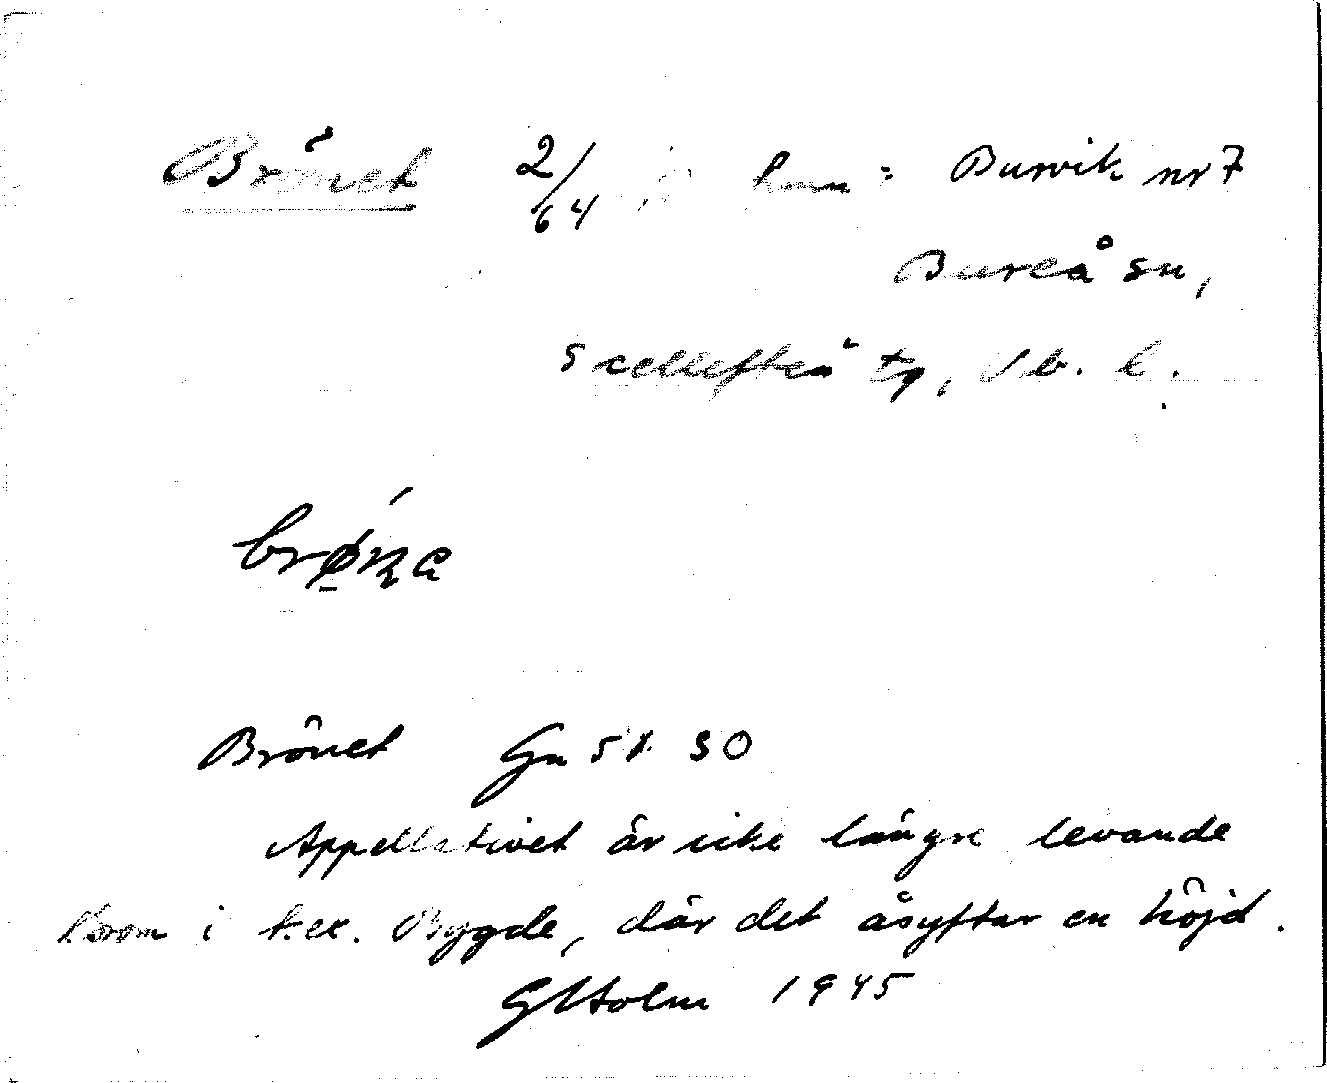 Brönet 2/64 hm = Burvik nr 7
Bureå sn,
Skellefteå tg, Vb. l.
brøna
Brönet Gn 5x 30
Appellativet är icke längre levande
i t.ex. Bygde, där det åsyftar en höjd.
GHolm 1945